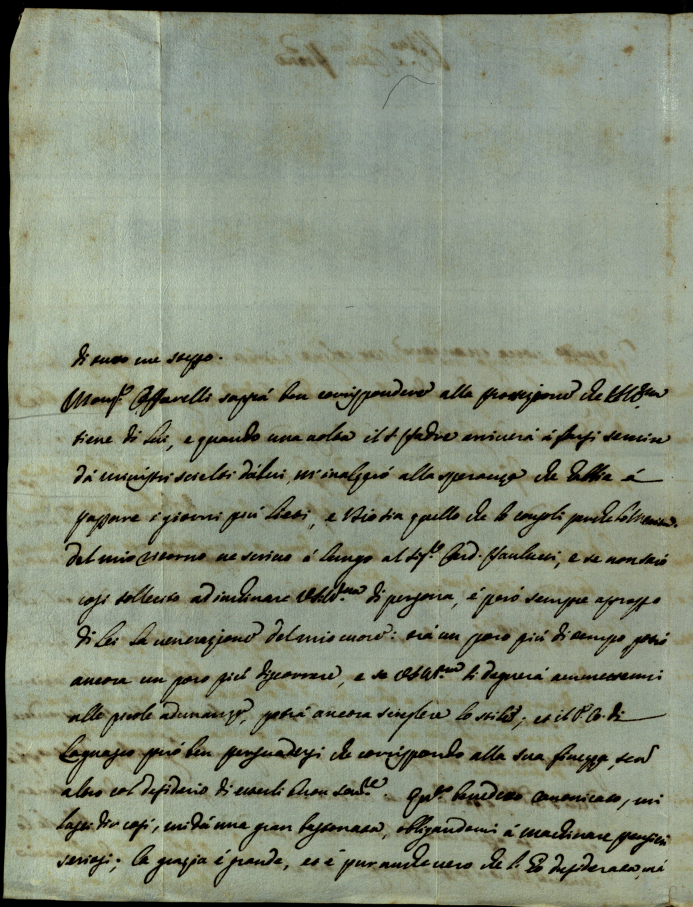 di tutto me stesso.
Monsr. Caffarelli saprà ben corrispondere alla protezione che VSIll.ma
tiene di Lui, e quando una volta il S. Padre arriverà à farsi servire
dà ministri scielti dà lui, m'inalzerò alla speranza che habbia à
passare i giorni più lieti, e Iddio sia quello che lo consoli perche lo merita.
del mio ritorno ne scrivo à lungo al Sig.r Card. Paulucci, e se non sarò
cosi sollecito ad inchinare VSIll.ma di persona, è però sempre appresso
di Lei la venerazione del mio cuore: trà un poco più di tempo, potrò
ancora un poco più discorrere, e se VSIll.ma si degnerà ammettermi
alle piccole adunanze, potrà ancora sciegliere lo stile; et il P. Co. di
Lagnasco può ben persuadersi che corrispondo alla sua finezza, se non
altro col desiderio di esserli buon ser.re Questo benedetto Canonicato, mi
lassi dir cosi, mi dà una gran bastonata, obligandomi à machinare pensieri
seriosi; la grazia è grande, et è pur anche vero che l' hò desiderata, mà